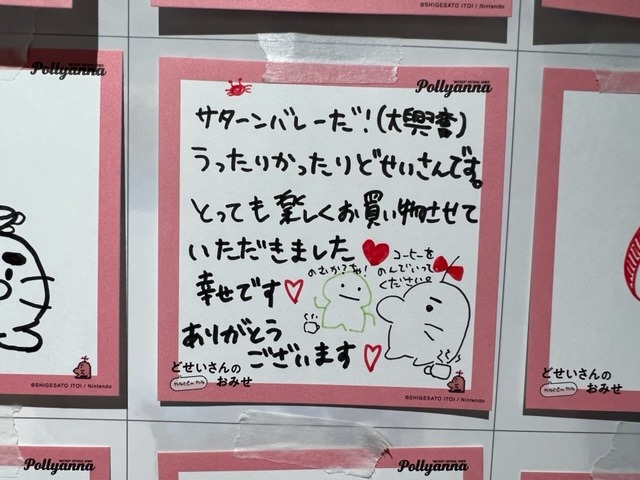 ©SHIGESATO ITOI / Nintendo
Pollyanna
Pollyanna
サターンバレーだ!(大興奮)
うったりかったりどせいさんです。
とっても楽しくお買い物させて
いただきました
コーヒーを
のんでいって
ください。
のむか?ちゃ!
幸せです
ありがとう
ございます
どせいさんの
おみせ
©SHIGESATO ITOI / Nintendo
©SHIGESATO ITOI / Nintendo
どせいさんの
おみせ
Pollyanna
Pollyanna